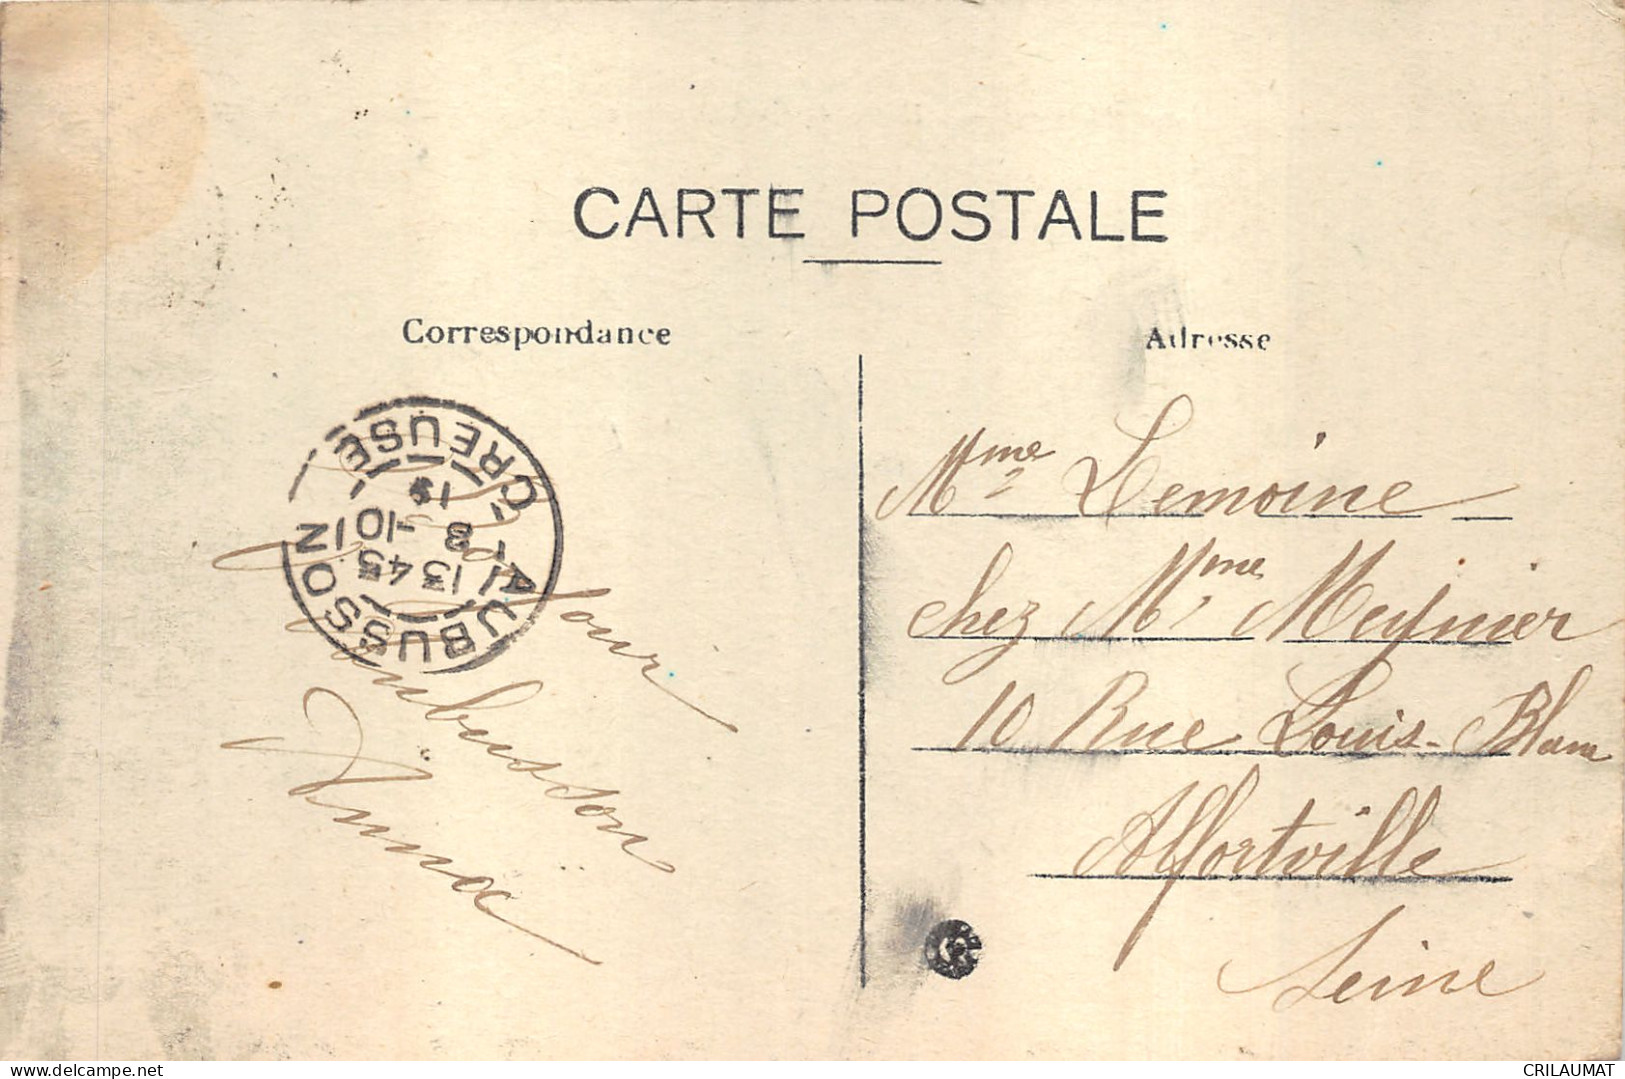 CARTE POSTALE
Correspondance
Adresse
AUBUSSON
CREUSE
13 45
8 -10
Bonjour
d'Aubusson
Anna
Mme Lemoine
chez Mme Meynier
10 Rue Louis-Blanc
Alfortville
Seine
delcampe.net
CRILAUMAT